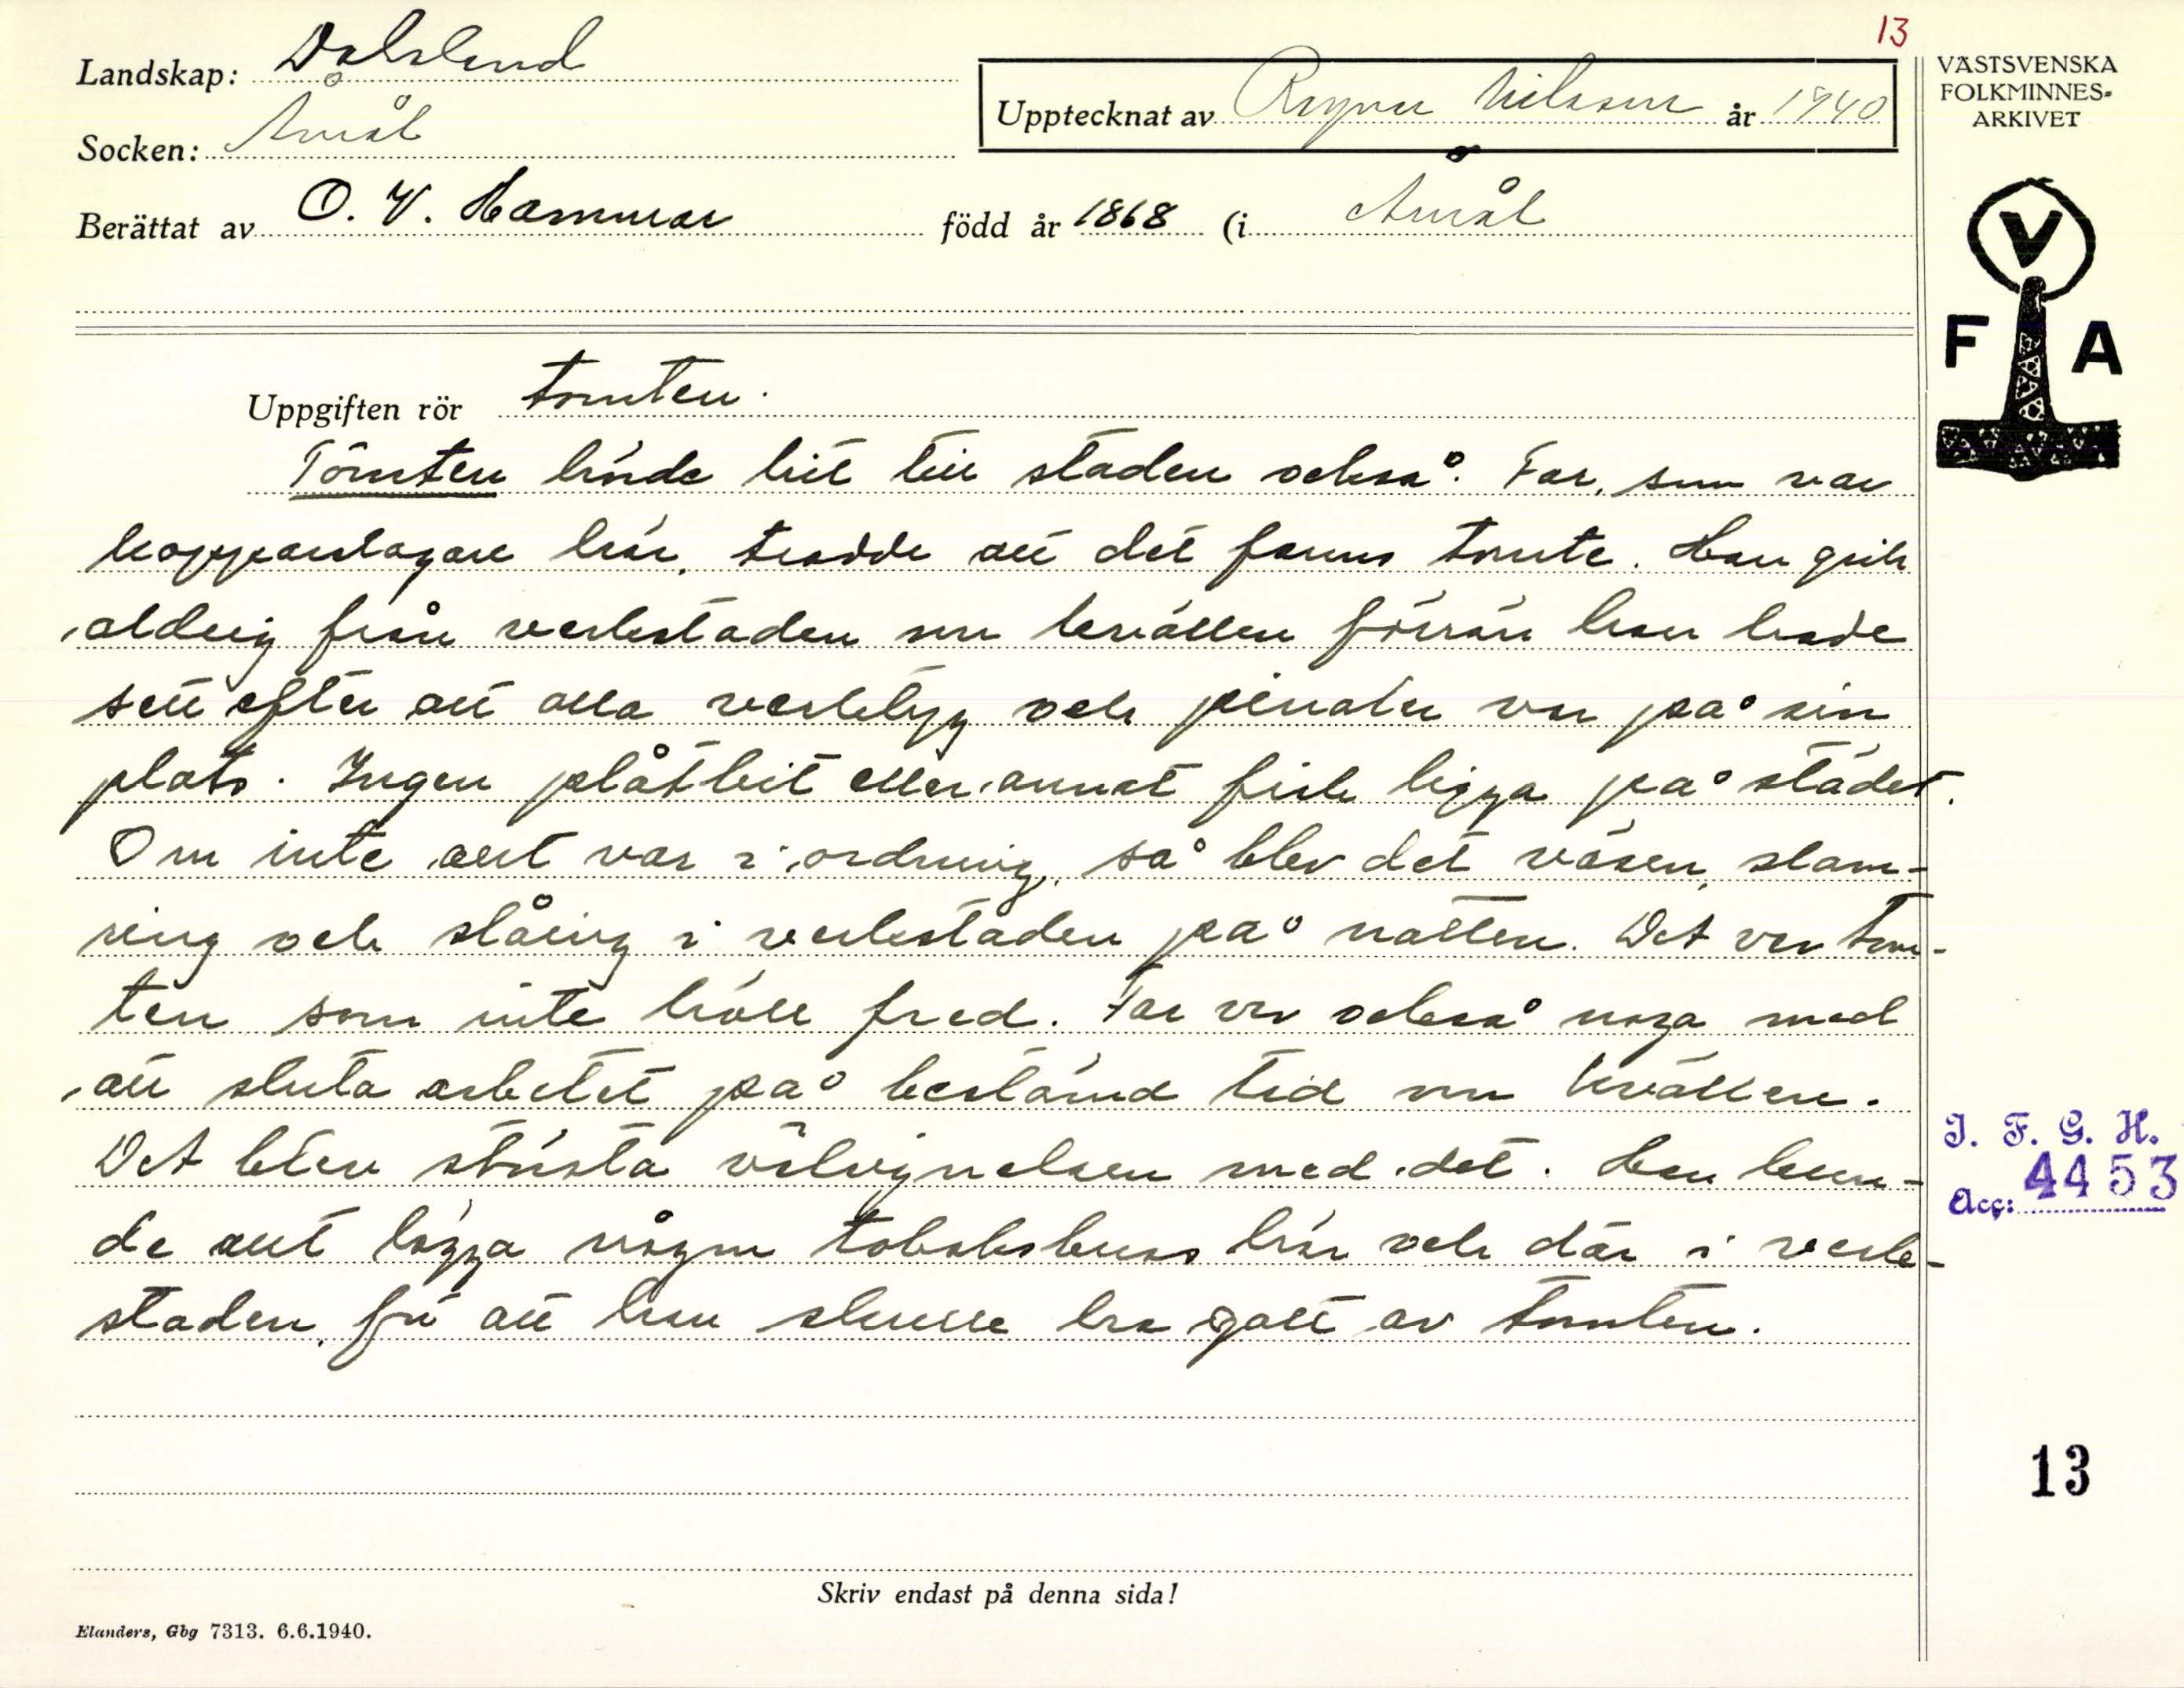 13
Landskap: Dalsland
Upptecknat av Ragnar Nilsson år 1940
VÄSTSVENSKA
FOLKMINNES-
ARKIVET
Socken: Åmål
Berättat av O. V. Hammar född år 1868 (i Åmål
V
F A
Uppgiften rör tomten.
Tomten hörde hit till staden också. Far, som var
kopparslagare här, trodde att det fanns tomte. Han gick
aldrig från verkstaden om kvällen förrän han hade
sett efter att alla verktyg och pinaler var på sin
plats. Ingen plåtbit eller annat fick ligga på städet.
Om inte allt var i ordning, så blev det väsen, slam-
ring och slåing i verkstaden på natten. Det var tom-
ten som inte höll fred. Far var också noga med
att sluta arbetet på bestämd tid om kvällen.
Det blev största välsignelsen med det. Han kun-
de allt lägga någon tobaksbuss här och där i verk-
staden, för att han skulle ha gott av tomten.
I. F. G. H.
Acc: 4453
13
Skriv endast på denna sida!
Elanders, Gbg 7313. 6.6.1940.